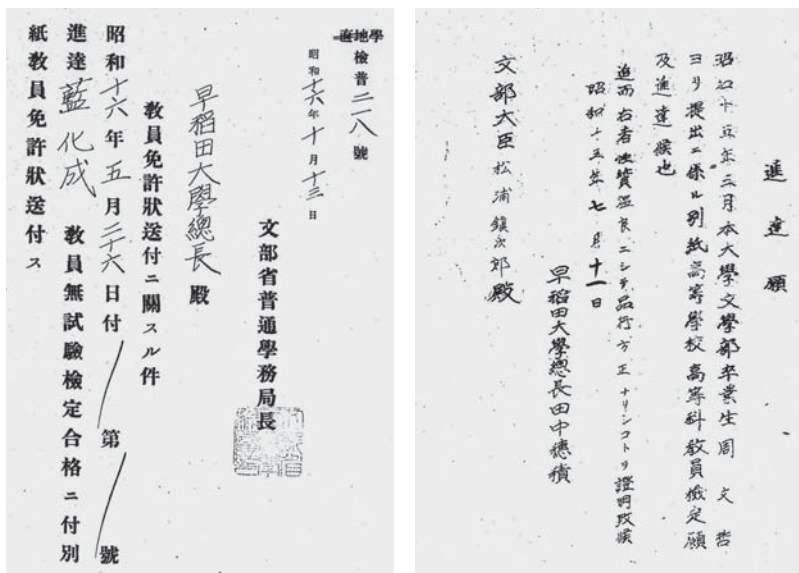 學地
檢普二一八號
昭和十六年十月十三日
文部省普通學務局長
早稻田大學總長殿
教員免許狀送付ニ關スル件
昭和十六年五月二十六日付 第 號
進達藍化成 教員無試驗檢定合格ニ付別
紙教員免許狀送付ス
進達願
昭和十五年三月本大學文學部卒業生周文哲
ヨリ提出ニ係ル別紙高等學校高等科教員檢定願
及進達候也
追而右者性質温良ニシテ品行方正ナリシコトヲ證明致候
昭和十五年七月十一日
早稻田大學總長田中穗積
文部大臣松浦鎮次郎殿